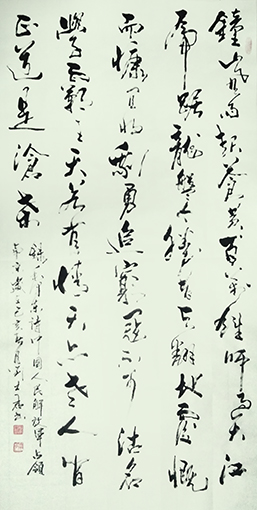 鐘山風雨起蒼黃百萬雄師過大江
虎踞龍盤今勝昔天翻地覆慨
而慷宜將剩勇追窮寇不可沽名
學霸王天若有情天亦老人間
正道是滄桑
錄毛澤東詩中國人民解放軍占領
南京